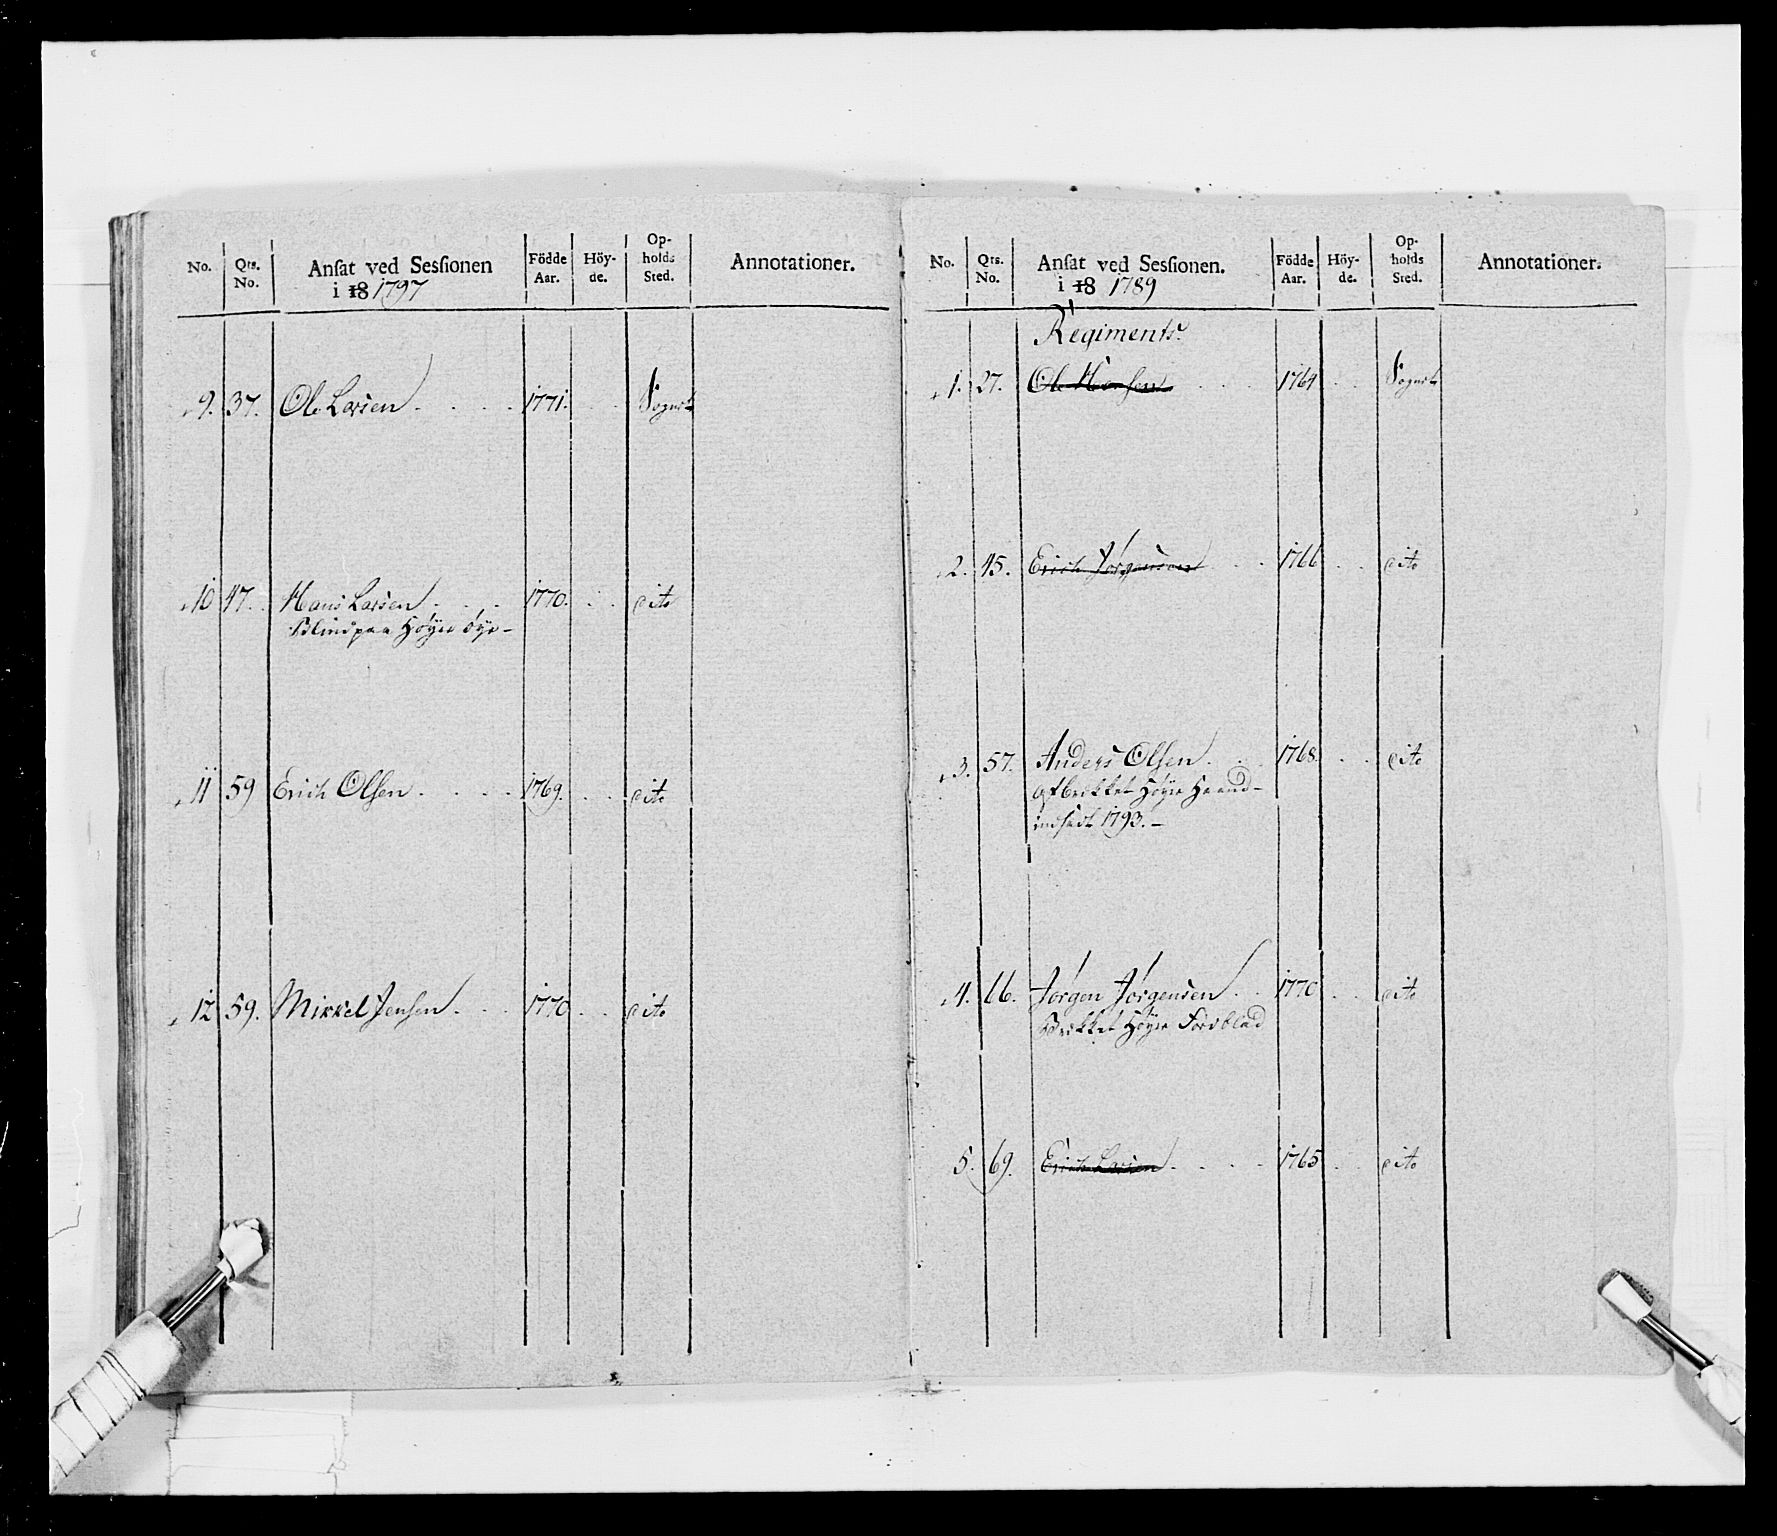 No. Qts. No. Ansat ved Sessionen i 18 1797 Födde Aar. Höy-de. Op-holds Sted. Annotationer.
9. 37. Ole Larsen 1771.
10 47. Hans Larsen 1770. dito
Blind paa Høyre øye
11 59 Erich Olsen 1769. dito
12 59. Mikkel Jensen 1770 dito
No. Qts. No. Ansat ved Sessionen. i 18 1789 Födde Aar. Höy-de. Op-holds Sted. Annotationer.
Regiments
1. 27. Ole Hansen 1764
2. 45. Erich Jørgensen 1766 dito
3. 57. Anders Olsen 1768. dito
Høyre Haand
1793.
4. 66. Jørgen Jørgensen 1770 dito
Brækket Høyre
5. 69. Erich Larsen 1765 dito